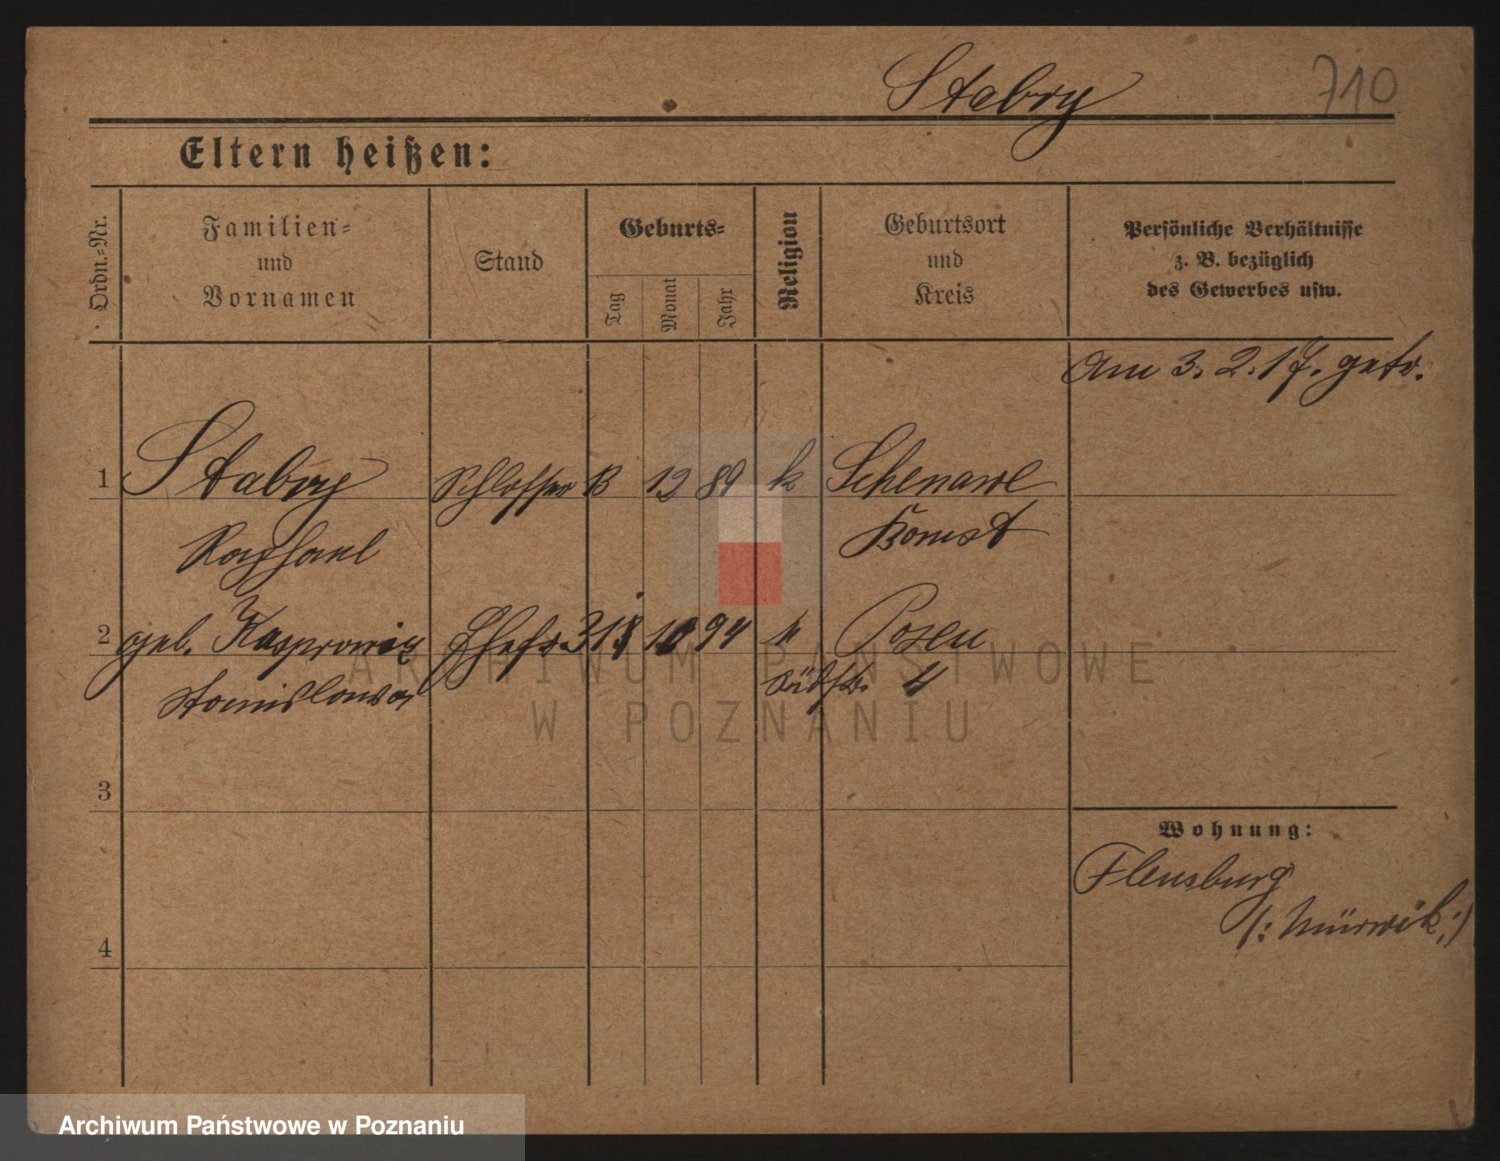 Stabry 710
Eltern heißen:
Ordn.-Nr.
Familien-
und
Vornamen
Stand
Geburts-
Tag
Monat
Jahr
Religion
Geburtsort
und
Kreis
Persönliche Verhältnisse
z. B. bezüglich
des Gewerbes usw.
Am 3. 2. 17. getr.
1 Stabry Schlosser 13 12 89 k
Raphael Bomst
2 geb. Kasprowicz Ehefr. 10 94 k Posen
Stanislawa Südstr. 4
3
4
Wohnung:
Flensburg
(: Mürwik :)
ARCHIWUM PAŃSTWOWE
W POZNANIU
Archiwum Państwowe w Poznaniu